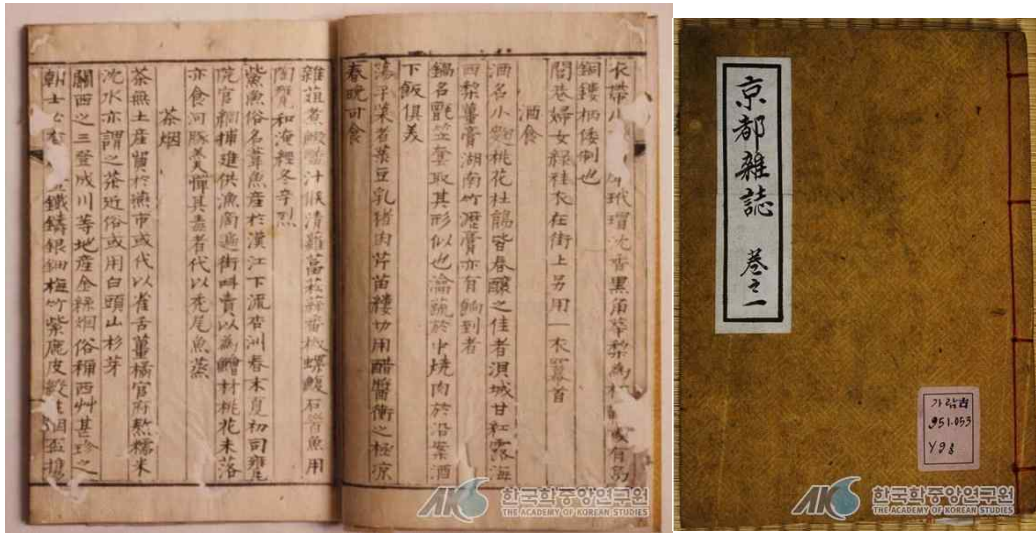 衣帶小 玳瑁沈香黑角華梨爲 或有烏
銅鏤柄倭制也
閭巷婦女綠袿衣在街上另用一衣冪首
酒食
酒名小麴桃花杜鵑皆春釀之佳者浿城甘紅露海
西梨薑膏湖南竹瀝膏亦有餉到者
鍋名氈笠套取其形似也瀹蔬於中燒肉於沿案酒
下飯俱美
蕩平菜者菉豆乳猪肉芹苗縷切用醋醬衝之極凉
春晩可食
雜葅煮鰕鹽汁候清蘿葍菘蒜番椒螺鰒石首魚用
陶甕和淹經冬辛烈
鮆魚俗名葦魚產於漢江下流杏洲春末夏初司饔
院官網捕進供漁商遍街叫賣以爲鱠材桃花未落
亦食河豚羹憚其毒者代以禿尾魚蒸
茶烟
茶無土産貿於燕市或代以雀舌薑橘官府熬糯米
沈水亦謂之茶近俗或用白頭山杉芽
關西之三登成川等地產金絲烟俗稱西艸甚珍之
朝士必有 鐵鑄銀鈿梅竹紫鹿皮 烟盃
AKS 한국학중앙연구원
THE ACADEMY OF KOREAN STUDIES
京都雜誌 卷之一
가람 古
951.053
Y98
AKS 한국학중앙연구원
THE ACADEMY OF KOREAN STUDIES